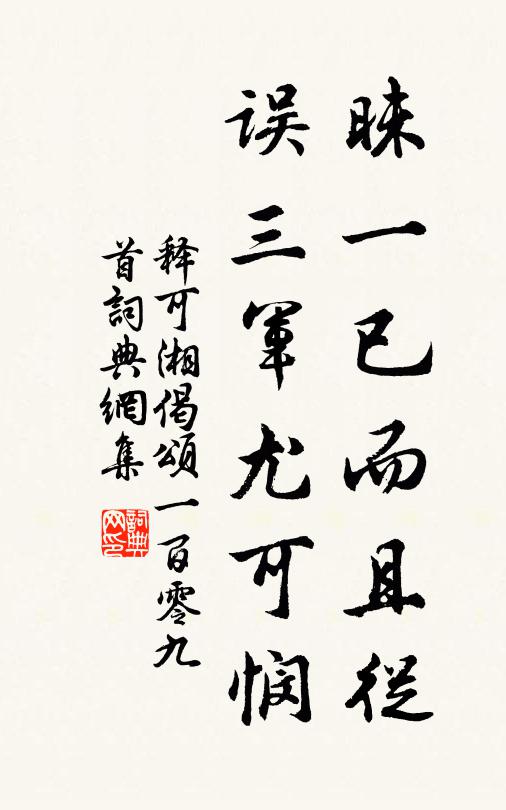 睐一已而且從
误三軍尤可悯
释可湘偈頌一百零九
首詞典網集
詞典网印